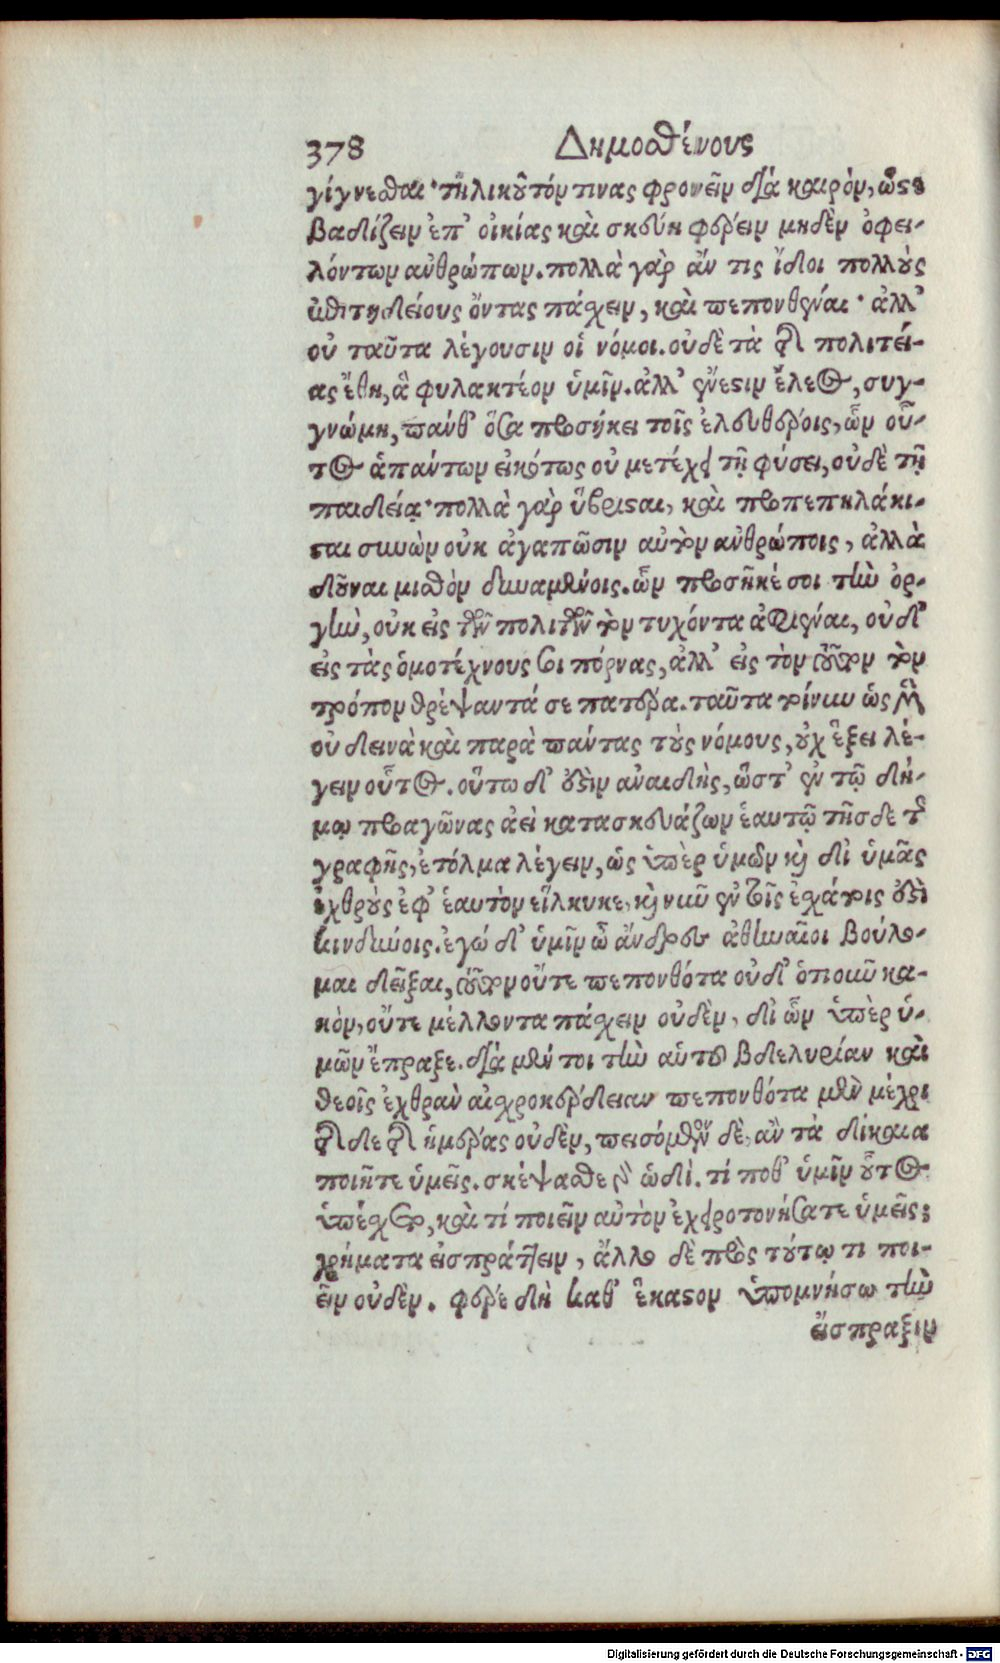 378 Δημοσθένους
γίγνεσθαι· τηλικοῦτόν τινας φρονεῖν διὰ καιρὸν, ὥστε
βαδίζειν ἐπ' οἰκίας καὶ σκεύη φέρειν μηδὲν ὀφει-
λόντων ἀνθρώπων. πολλὰ γὰρ ἄν τις ἴδοι πολλοὺς
ἐπιτηδείους ὄντας πάσχειν, καὶ πεπονθέναι· ἀλλ'
οὐ ταῦτα λέγουσιν οἱ νόμοι. οὐδὲ τὰ τῆς πολιτεί-
ας ἔθη, ἃ φυλακτέον ὑμῖν. ἀλλ' ἔνεστιν ἔλεος, συγ-
γνώμη, πάνθ' ὅσα προσήκει τοῖς ἐλευθέροις, ὧν οὗ-
τος ἁπάντων εἰκότως οὐ μετέχει τῇ φύσει, οὐδὲ τῇ
παιδείᾳ· πολλὰ γὰρ ὕβρισαι, καὶ προπεπηλάκι-
σαι συνὼν οὐκ ἀγαπῶσιν αὐτὸν ἀνθρώποις, ἀλλὰ
δοῦναι μισθὸν δυναμένοις. ὧν προσῆκέ σοι τὴν ὀρ-
γὴν, οὐκ εἰς τῶν πολιτῶν τὸν τυχόντα ἀφιέναι, οὐδ'
εἰς τὰς ὁμοτέχνους σοι πόρνας, ἀλλ' εἰς τὸν τοῦτον τὸν
τρόπον θρέψαντά σε πατέρα. ταῦτα τοίνυν ὡς μὲν
οὐ δεινὰ καὶ παρὰ πάντας τοὺς νόμους, οὐχ ἕξει λέ-
γειν οὗτος. οὕτω δ' ἐστὶν ἀναιδὴς, ὥστ' ἐν τῷ δή-
μῳ προαγῶνας ἀεὶ κατασκευάζων ἑαυτῷ τῆσδε τῆς
γραφῆς, ἐτόλμα λέγειν, ὡς ὑπὲρ ὑμῶν καὶ δι' ὑμᾶς
ἐχθροὺς ἐφ' ἑαυτὸν εἵλκυκε, καὶ νῦν ἐν τοῖς ἐσχάτοις ἐστὶ
κινδύνοις. ἐγώ δ' ὑμῖν ὦ ἄνδρες ἀθηναῖοι βούλο-
μαι δεῖξαι, τοῦτον οὔτε πεπονθότα οὐδ' ὁτιοῦν κα-
κὸν, οὔτε μέλλοντα πάσχειν οὐδὲν, δι' ὧν ὑπὲρ ὑ-
μῶν ἔπραξε. διὰ μέντοι τὴν αὑτοῦ βδελυρίαν καὶ
θεοῖς ἐχθρὰν αἰσχροκέρδειαν πεπονθότα μὲν μέχρι
τῆσδε τῆς ἡμέρας οὐδὲν, πεισόμενον δὲ, ἂν τὰ δίκαια
ποιῆτε ὑμεῖς. σκέψασθε γὰρ ὡδί. τί ποθ' ὑμῖν οὗτος
ὑπέσχετο, καὶ τί ποιεῖν αὐτὸν ἐχειροτονήσατε ὑμεῖς;
χρήματα εἰσπράττειν, ἄλλο δὲ πρὸς τούτῳ τι ποι-
εῖν οὐδὲν. φέρε δὴ καθ' ἕκαστον ὑπομνήσω τὴν
εἴσπραξιν
Digitalisierung gefördert durch die Deutsche Forschungsgemeinschaft - DFG